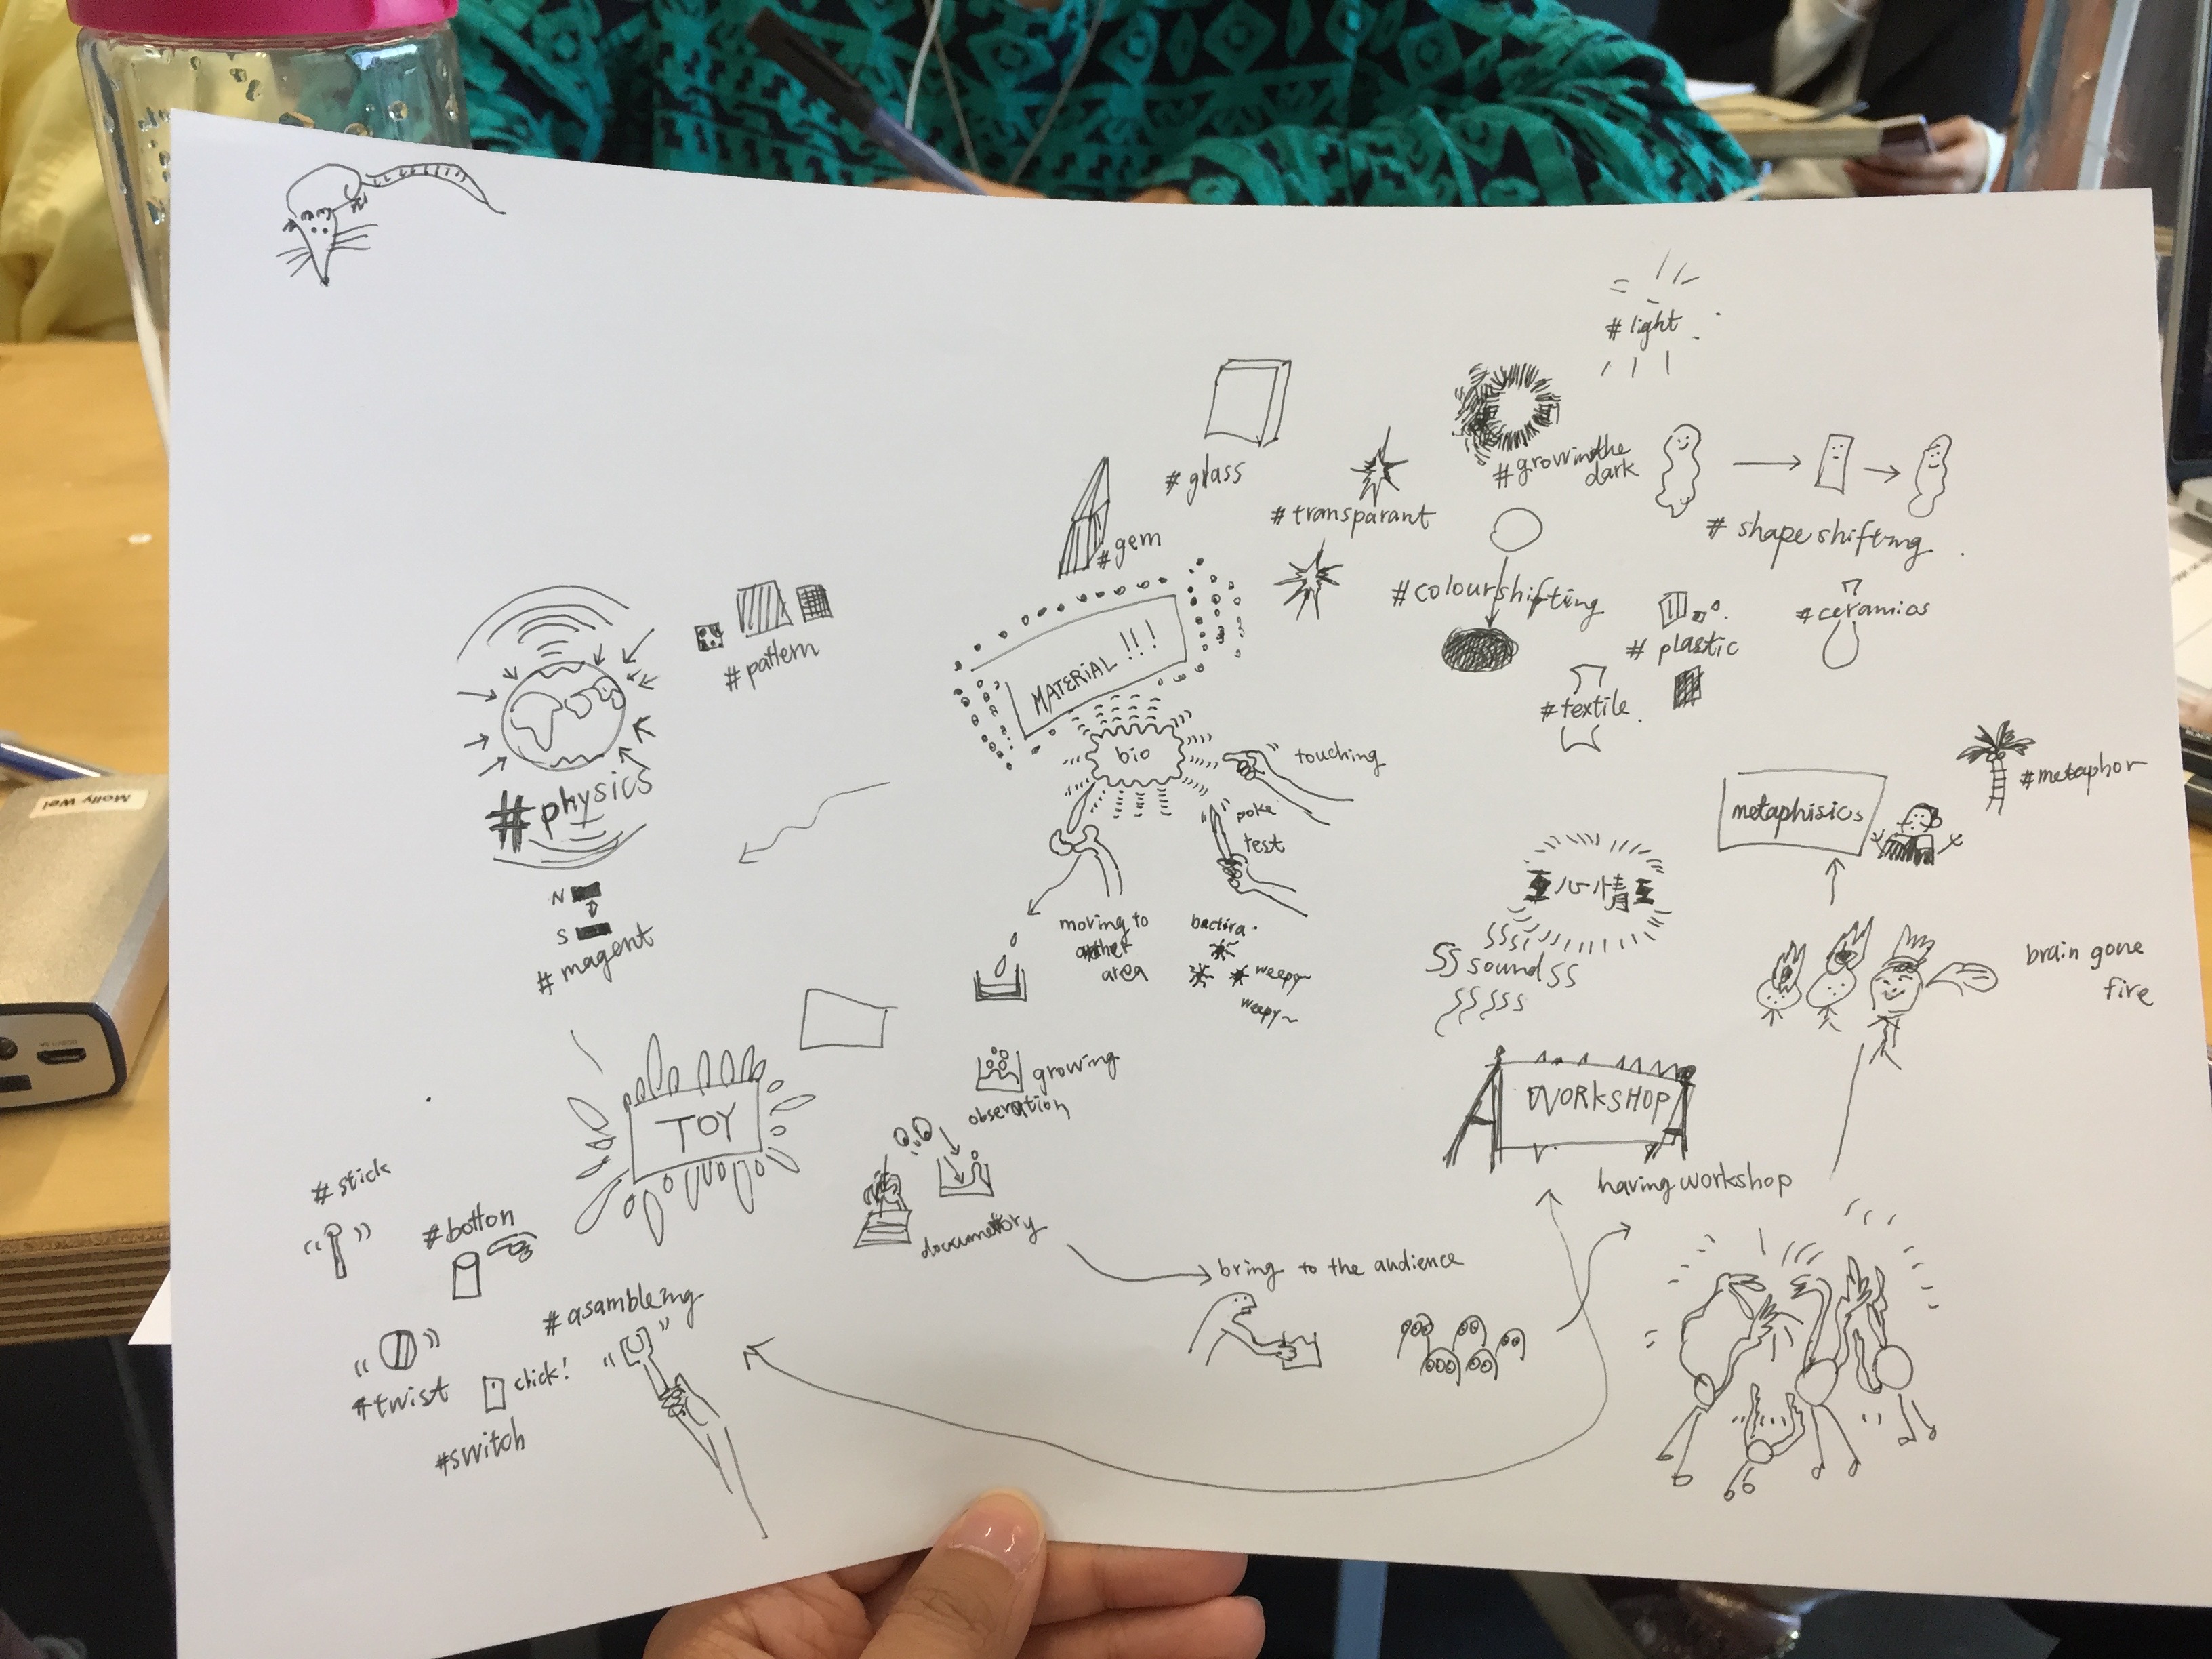 # light
# glass
# growinthe
dark
# transparant
# shapeshifting
# gem
# colourshifting
# ceramics
# plastic
# pattern
MATERIAL !!!
# textile
bio
touching
# physics
poke
test
metaphisics
# metaphor
N
S
# magent
moving to
area
bactira
weepy~
weepy~
心情
SS sound SS
brain gone
fire
growing
obseration
TOY
WORKSHOP
having workshop
# stick
# botton
documentory
bring to the audience
# asambleing
# twist
click!
# switch
Molly Wei